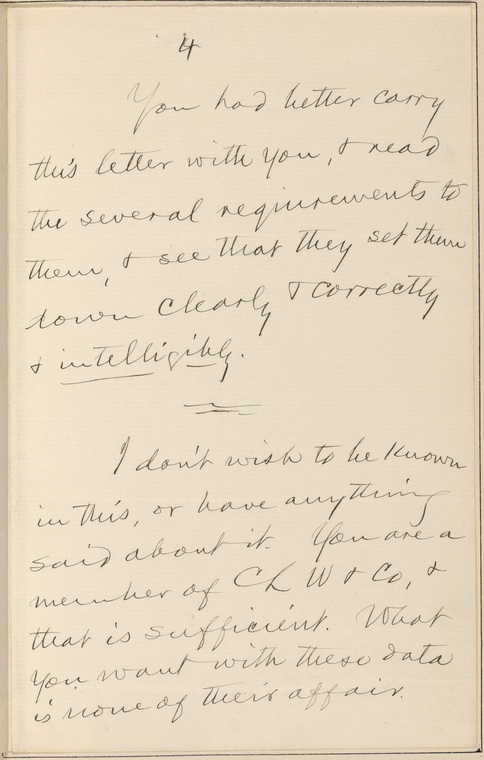 4
You had better carry
this letter with you, & read
the several requirements to
them, & see that they set them
down clearly & correctly
& intelligibly.
I don't wish to be known
in this, or have anything
said about it. You are a
member of C L W & Co, &
that is sufficient. What
you want with these data
is none of their affair.